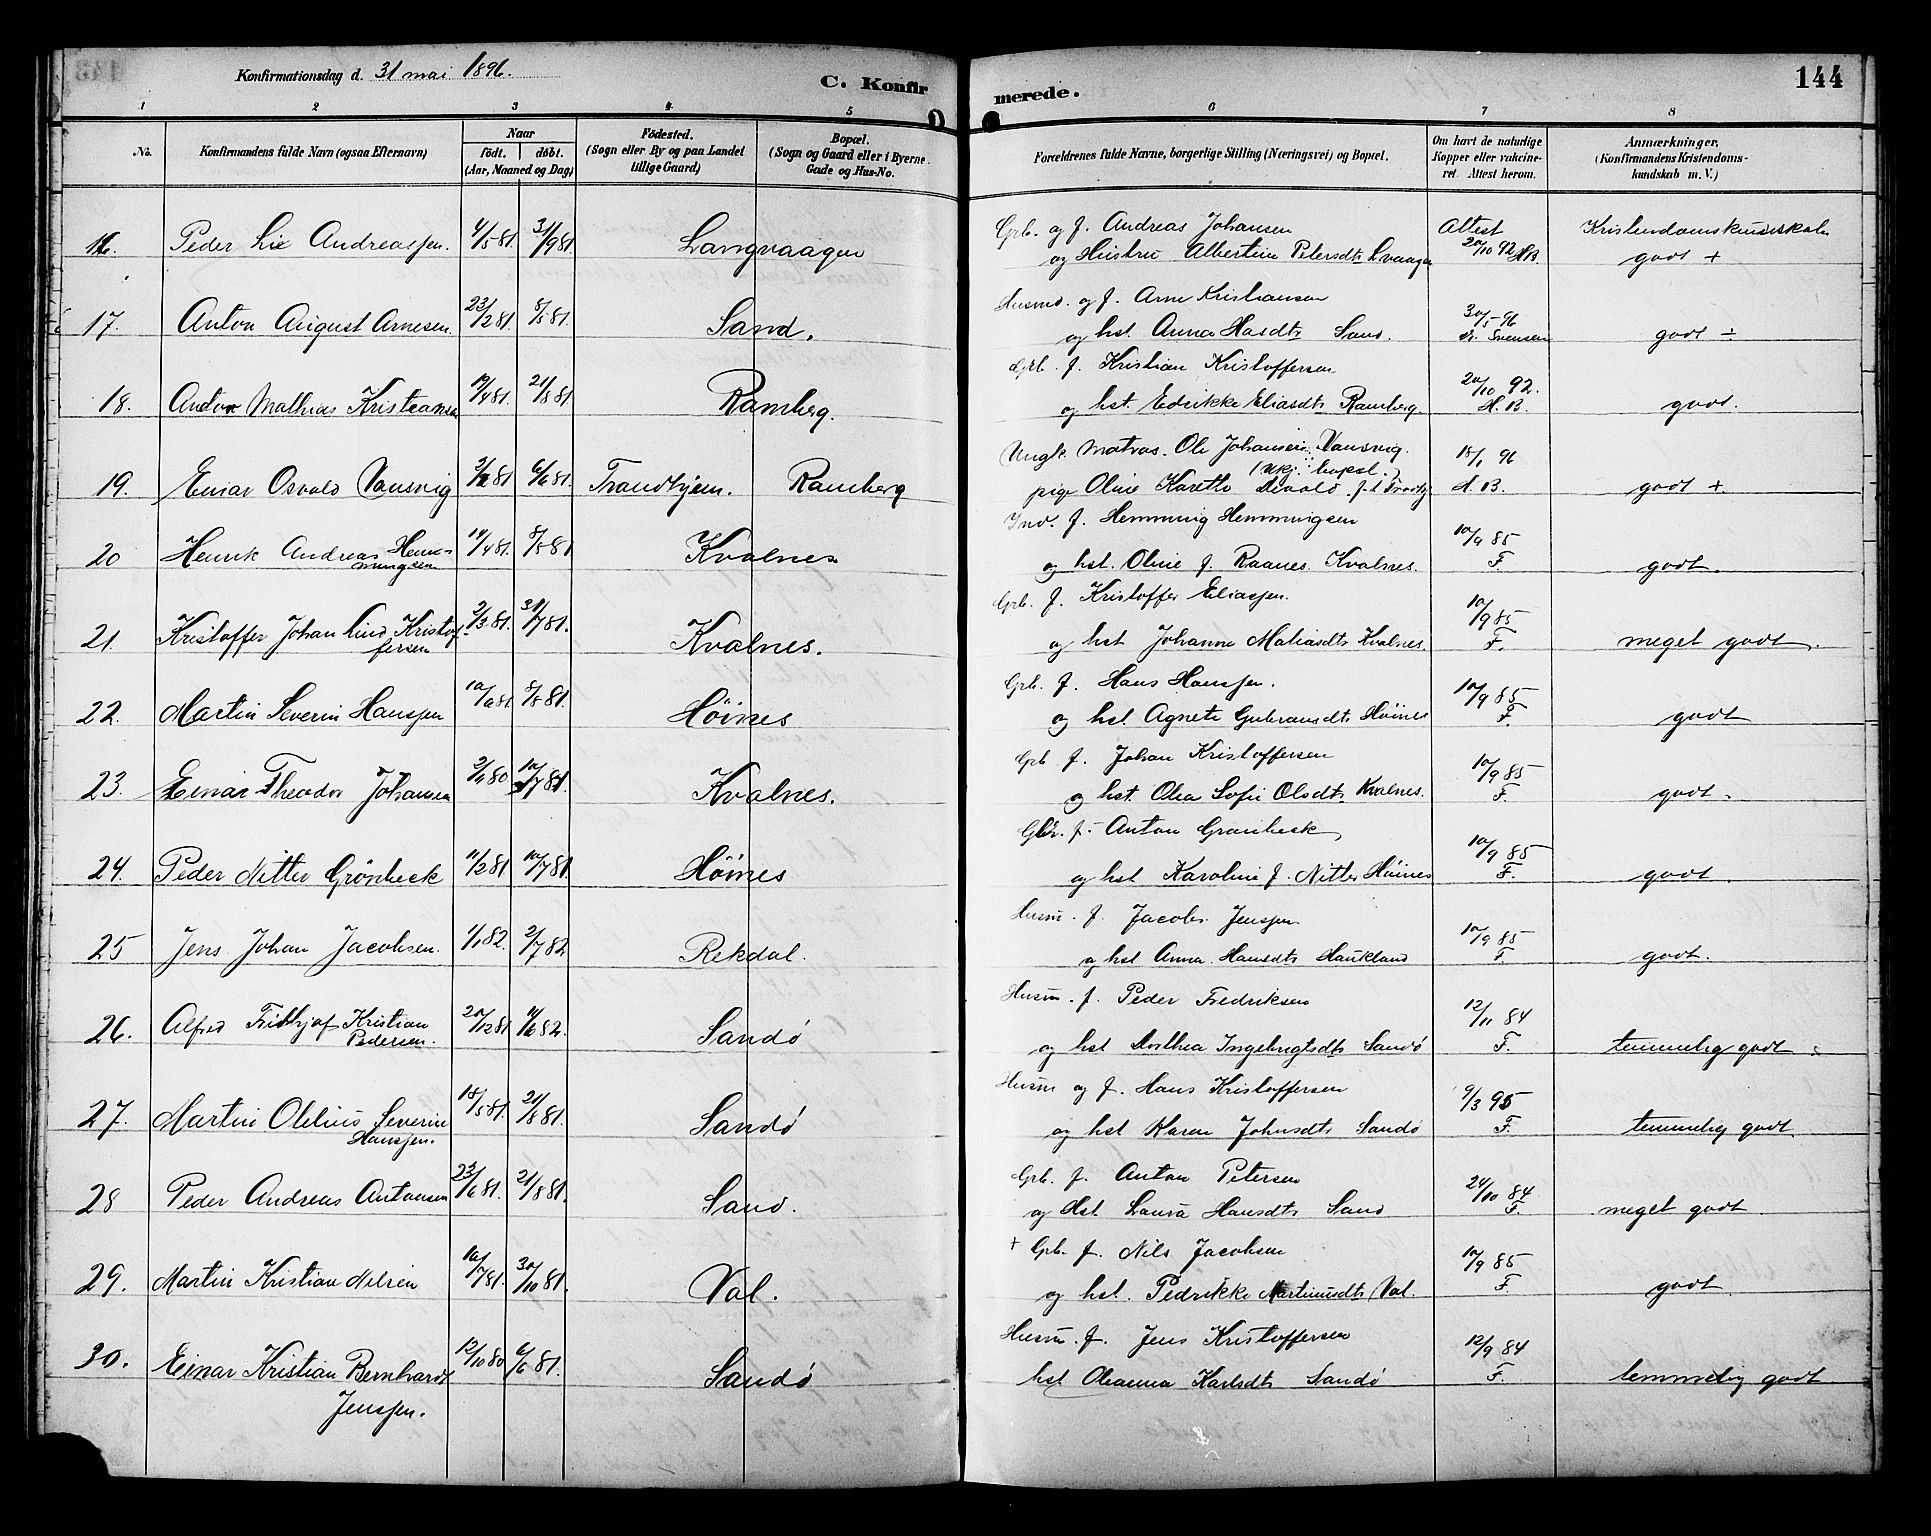 144
Konfirmationsdag d. 31 mai 1896.
C. Konfirmerede.
1 2 3 4 5 6 7 8
No.
Konfirmandens fulde Navn (ogsaa Efternavn)
Naar
födt. döbt.
(Aar, Maaned og Dag)
Födested.
(Sogn eller By og paa Landet
tillige Gaard)
Bopæl.
(Sogn og Gaard eller i Byerne
Gade og Hus-No.
Forældrenes fulde Navne, borgerlige Stilling (Næringsvei) og Bopæl.
Om havt de naturlige
Kopper eller vakcine-
ret. Attest herom.
Anmærkninger.
(Konfirmandens Kristendoms-
kundskab m. V.)
16. Peder Lie Andreassen. 4/5 81. 31/9 81. Langvaagen Grb. og f. Andreas Johansen Attest
og Hustru Albertine Petersdtr 20/10 92 godt +
17. Anton August Arnesen. 23/2 81. 8/5 81. Sand. Husmd. og f. Arne Kristiansen 30/5-96
og hst. Anna Sand. Dr. Svensen godt ÷
18. Anton Mathias Kristiansen 19/4 81 21/8 81 Ramberg. Grb. f. Kristian Kristoffersen 20/10 92.
og hst. Edrikke Eliasdtr Ramberg H.B. godt.
19. Einar Osvald Vansvig 81 6/6 81 Trondhjem. Ramberg Ungk. Matros. Ole Johansen Vansvig. 18/1 96
(Ukj. bopæl.)
pige Oline H.B. godt +.
20 Henrik Andreas Hem-
mingsen 14/4 81. 8/5 81 Kvalnes Ind. f. Hemming Hemmingsen 10/9 85
og hst. Oline f. Raanes Kvalnes. F. godt.
21. Kristoffer Johan Lind Kristof-
fersen 2/3 81. 31/7 81. Kvalnes. Grb. f. Kristoffer Eliassen. 10/9 85
og hst Johanne Matiasdtr Kvalnes. F. meget godt.
22. Martin Severin Hanssen 81 8/5 81. Höines Grb. f. Hans Hanssen. 10/9 85
og hst. Agnete Höines F. godt
23. Einar Theodor Johansen 80 10/7 81. Kvalnes. Grb f. Johan Kristoffersen 10/9 85
og hst. Olea Sofie Olsdtr Kvalnes. F. godt.
24. Peder Nitter Grönbeck 11/2 81 10/7 81 Höines f. Anton Grönbeck 10/9 85
og hst Karoline f. Nitter Höines F. godt.
25 Jens Johan Jacobsen. 1/1 82. 2/7 82 Rekdal. Husm. f. Jacob Jenssen 10/9 85
og hst Anna Hansdtr Haukland F. godt.
26. Alfred Fritthjof Kristian
Pedersen. 20/12 81 82. Sandö Husm. f. Peder Fredriksen 12/11 84
og hst Dorthea Ingebrigtsdtr Sandö F. temmelig godt
27. Martin Olelius Severin
Hanssen. 18/5 81. 21/8 81. Sandö Husm og f. Hans Kristoffersen 9/3 95
og hst Karen Johnsdtr Sandö F. temmelig godt
28 Peder Andreas Antonsen 23/6 81. 21/8 81. Sand. Grb. f. Anton Petersen 24/10 84
og Hst. Laura Hansdtr Sand F. meget godt.
29. Martin Kristian Nilsen 10/7 81. 30/10 81. Val. + Grb. f. Nils Jacobsen 10/9 85
og hst. Pedrikke Martinusdtr Val. F. godt.
30. Einar Kristian Bernhardt
Jenssen. 12/10 80 6/6 81. Sandö Husm. f. Jens Kristoffersen 12/9 84
hst Oleanna Karlsdtr Sandö F. temmelig godt